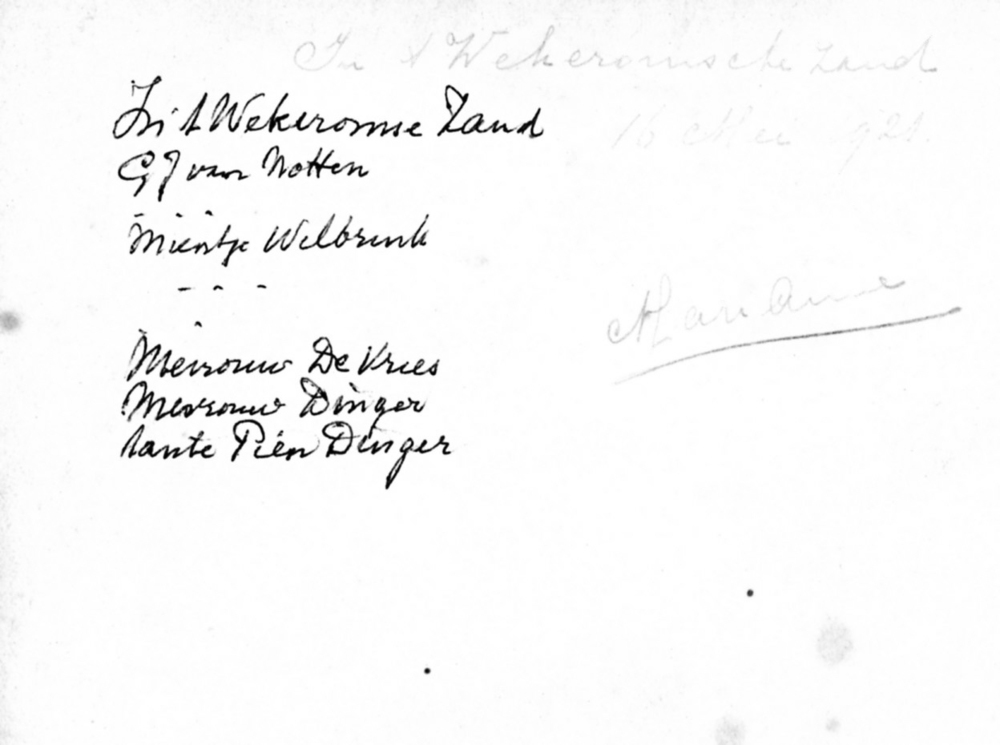 In 't Wekeromsche Zand
16 Mei 1921.
In 't Wekeromse Zand
G J van Notten
Mientje Welbrink
- - -
Mevrouw De Vries
Mevrouw Dinger
tante Pien Dinger
Marianne